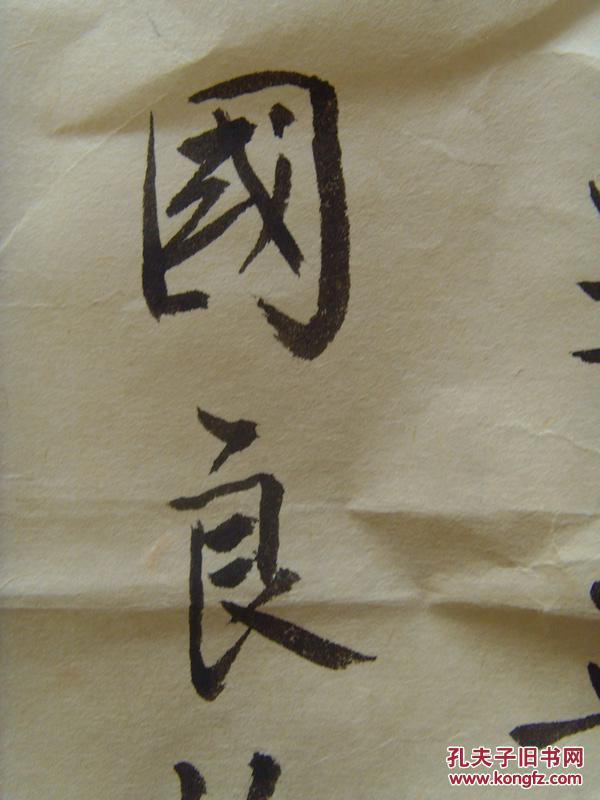 國良
孔夫子旧书网
www.kongfz.com